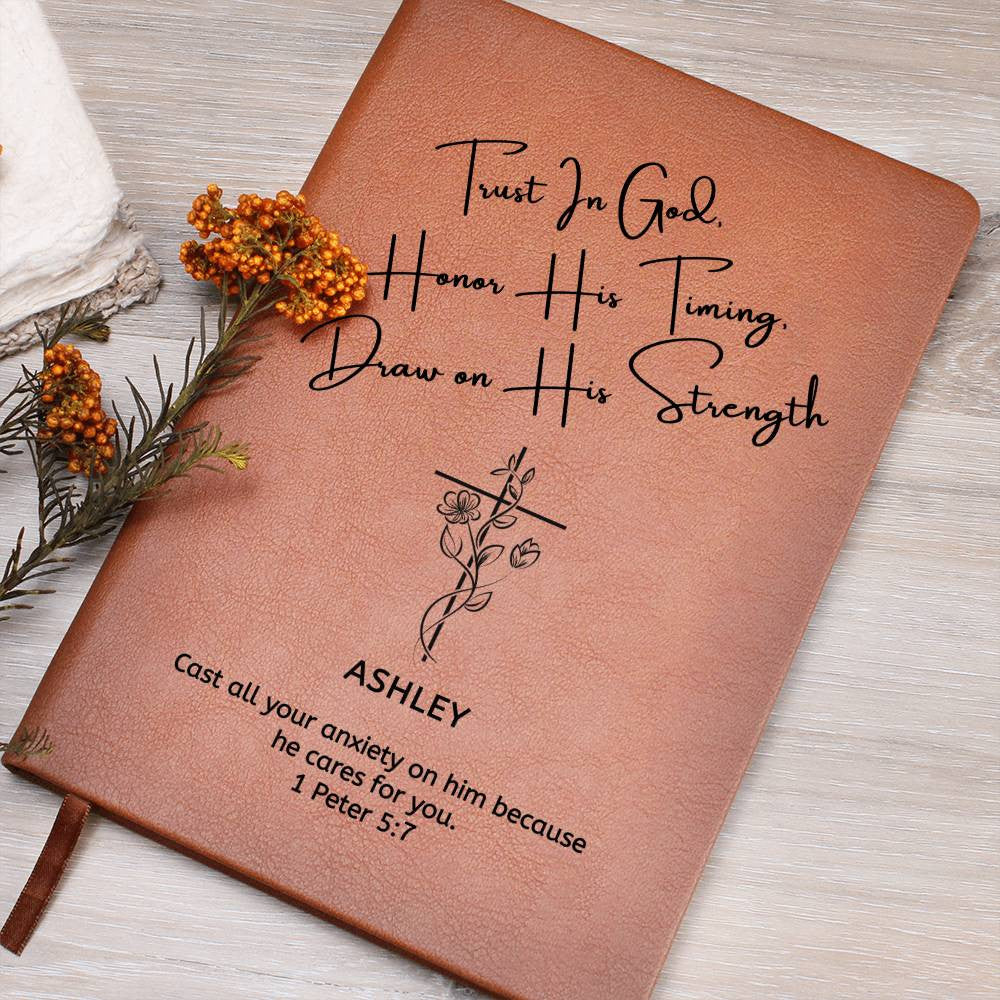 Trust In God,
Honor His Timing,
Draw on His Strength
ASHLEY
Cast all your anxiety on him because
he cares for you.
1 Peter 5:7